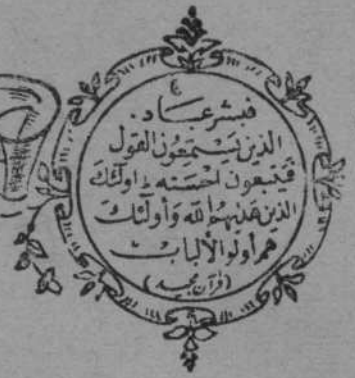 فبشر عباد.
الذین یستمعون القول
فیتبعون احسنه اولئك
الذین هدیهم الله وأولئك
هم أولو الألباب
(قرآن مجید)